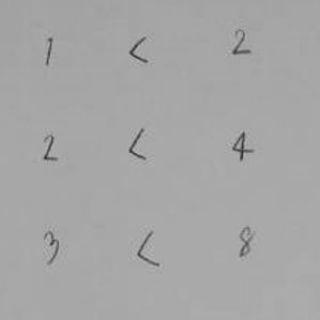 1 < 2
2 < 4
3 < 8